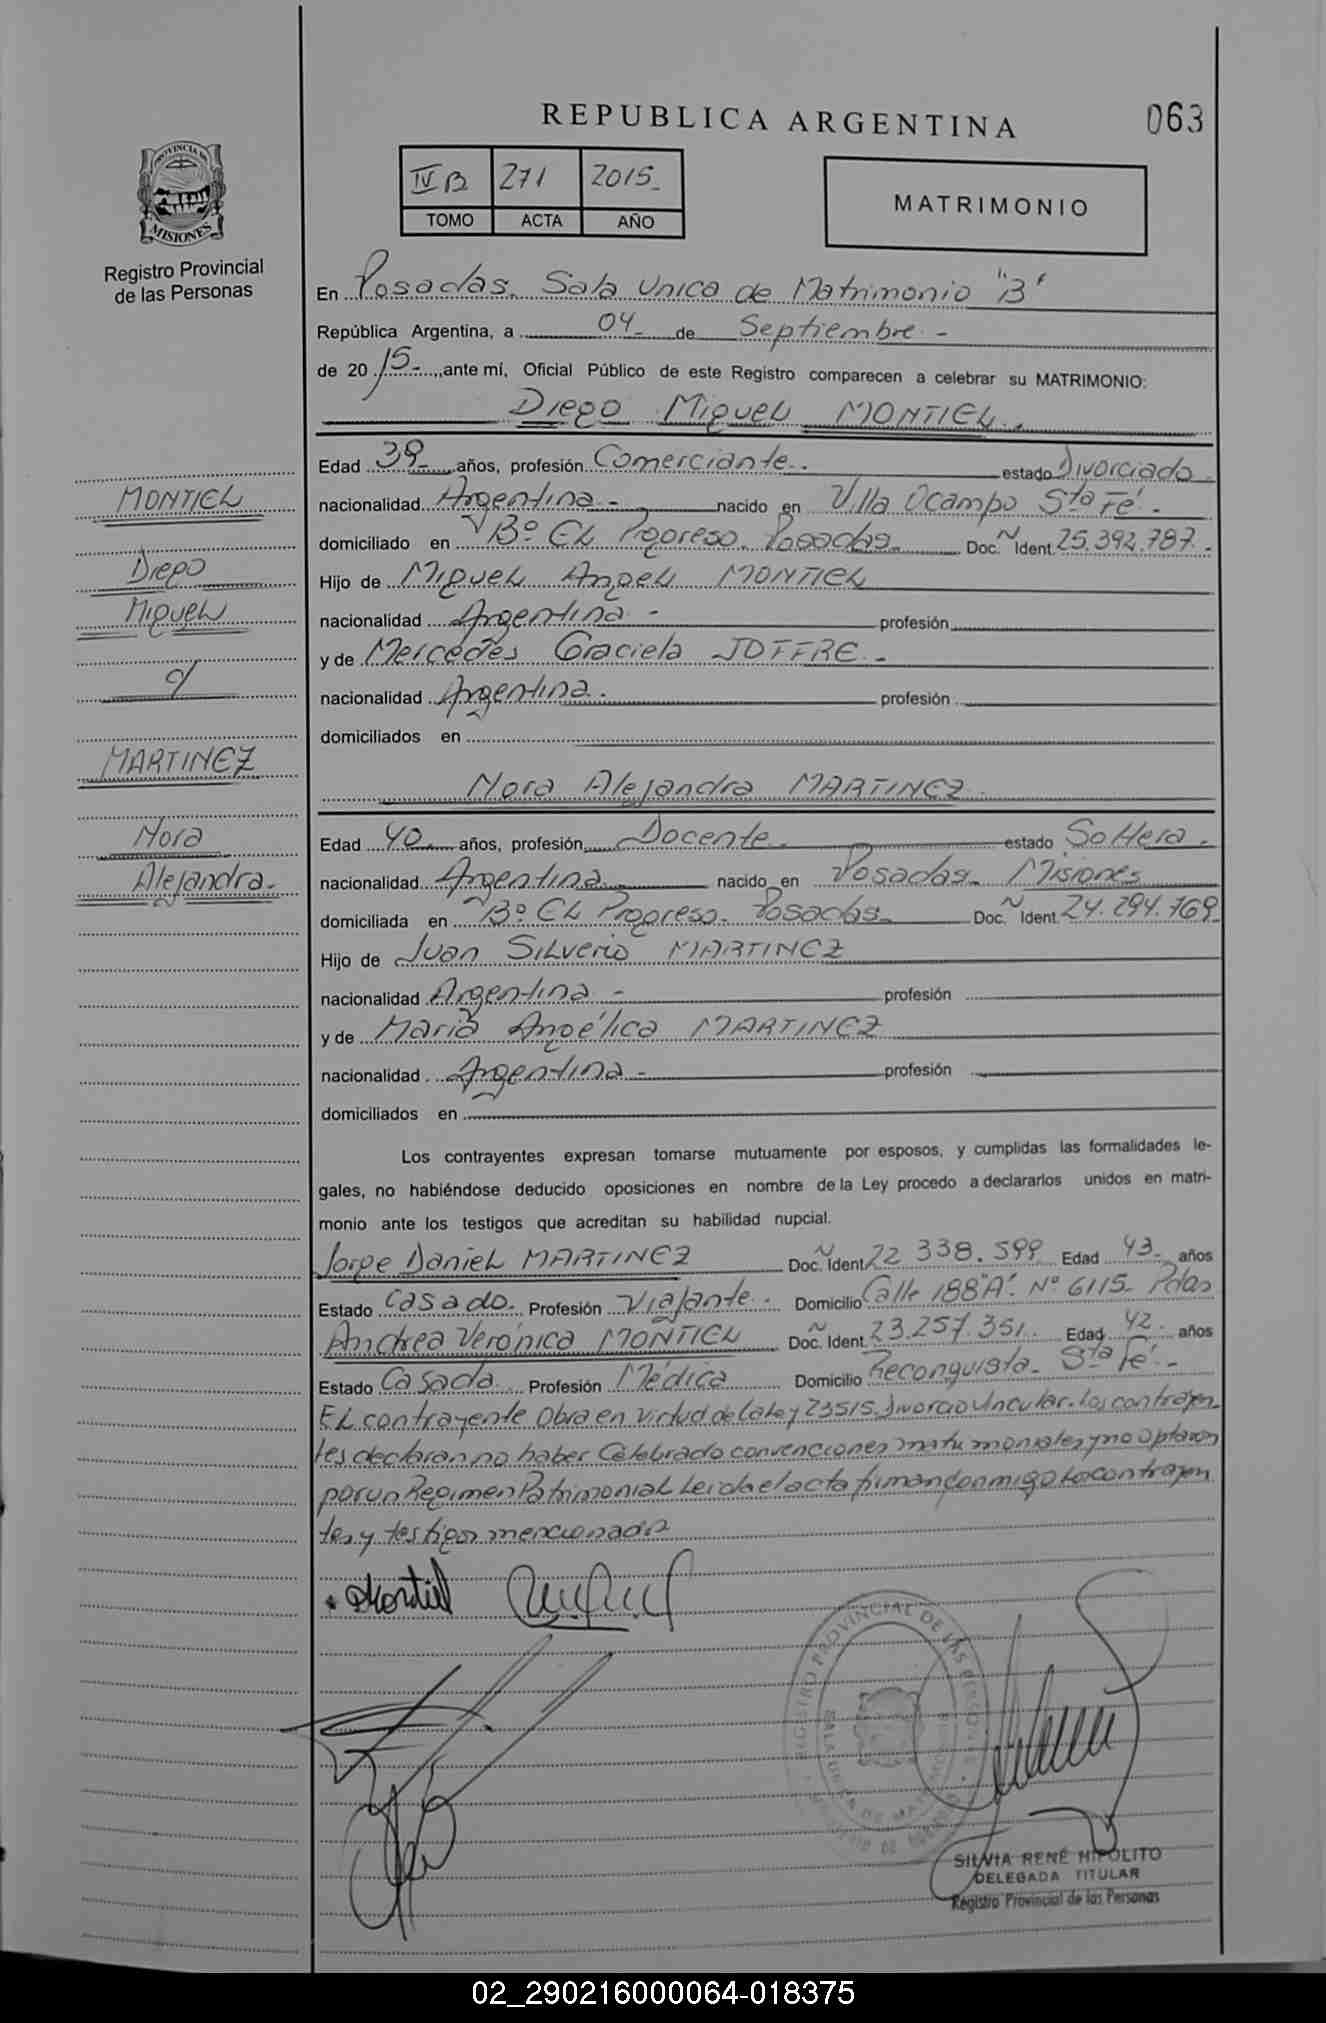 REPUBLICA ARGENTINA
063
IV B 271 2015
TOMO ACTA AÑO
MATRIMONIO
PROVINCIA DE
MISIONES
Registro Provincial
de las Personas
En Posadas. Sala Unica de Matrimonio "B"
República Argentina, a 04 de Septiembre -
de 2015 - ante mí, Oficial Público de este Registro comparecen a celebrar su MATRIMONIO:
Diego Miguel MONTIEL.
Edad 39 años, profesión Comerciante. estado Divorciado
nacionalidad Argentina - nacido en Villa Ocampo Sta Fé -
domiciliado en Bº EL Progreso. Posadas. Doc. Ñ Ident. 25.392.787.
Hijo de Miguel Angel MONTIEL
nacionalidad Argentina - profesión
y de Mercedes Graciela JOFFRE -
nacionalidad Argentina. profesión
domiciliados en
Nora Alejandra MARTINEZ
Edad 40 años, profesión Docente estado Soltera.
nacionalidad Argentina nacido en Posadas - Misiones
domiciliada en Bº EL Progreso - Posadas Doc. Ñ Ident. 24.294.769
Hijo de Juan Silverio MARTINEZ
nacionalidad Argentina - profesión
y de Maria Angélica MARTINEZ
nacionalidad Argentina - profesión
domiciliados en
Los contrayentes expresan tomarse mutuamente por esposos, y cumplidas las formalidades le-
gales, no habiéndose deducido oposiciones en nombre de la Ley procedo a declararlos unidos en matri-
monio ante los testigos que acreditan su habilidad nupcial.
Jorge Daniel MARTINEZ Doc. Ñ Ident. 22 338.599 Edad 43 años
Estado Casado. Profesión Viajante. Domicilio Calle 188 "A" Nº 6115 Pdas
Andrea Verónica MONTIEL Doc. Ñ Ident. 23.257.351. Edad 42. años
Estado Casada Profesión Médica Domicilio Reconquista - Sta Fé -
EL contrayente Obra en virtud de la Ley 23515. Divorcio Vincular. Los contrayen
tes declaran no haber Celebrado convenciones matrimoniales y no optaron
por un Regimen Patrimonial Leida el acta firman conmigo Lo contrayen
tes y testigos mencionado
MONTIEL
Diego
Miguel
c/
MARTINEZ
Nora
Alejandra
Montiel
REGISTRO PROVINCIAL DE LAS PERSONAS
SALA UNICA DE MATRIMONIO
SILVIA RENÉ HIPOLITO
DELEGADA TITULAR
Registro Provincial de las Personas
02_290216000064-018375